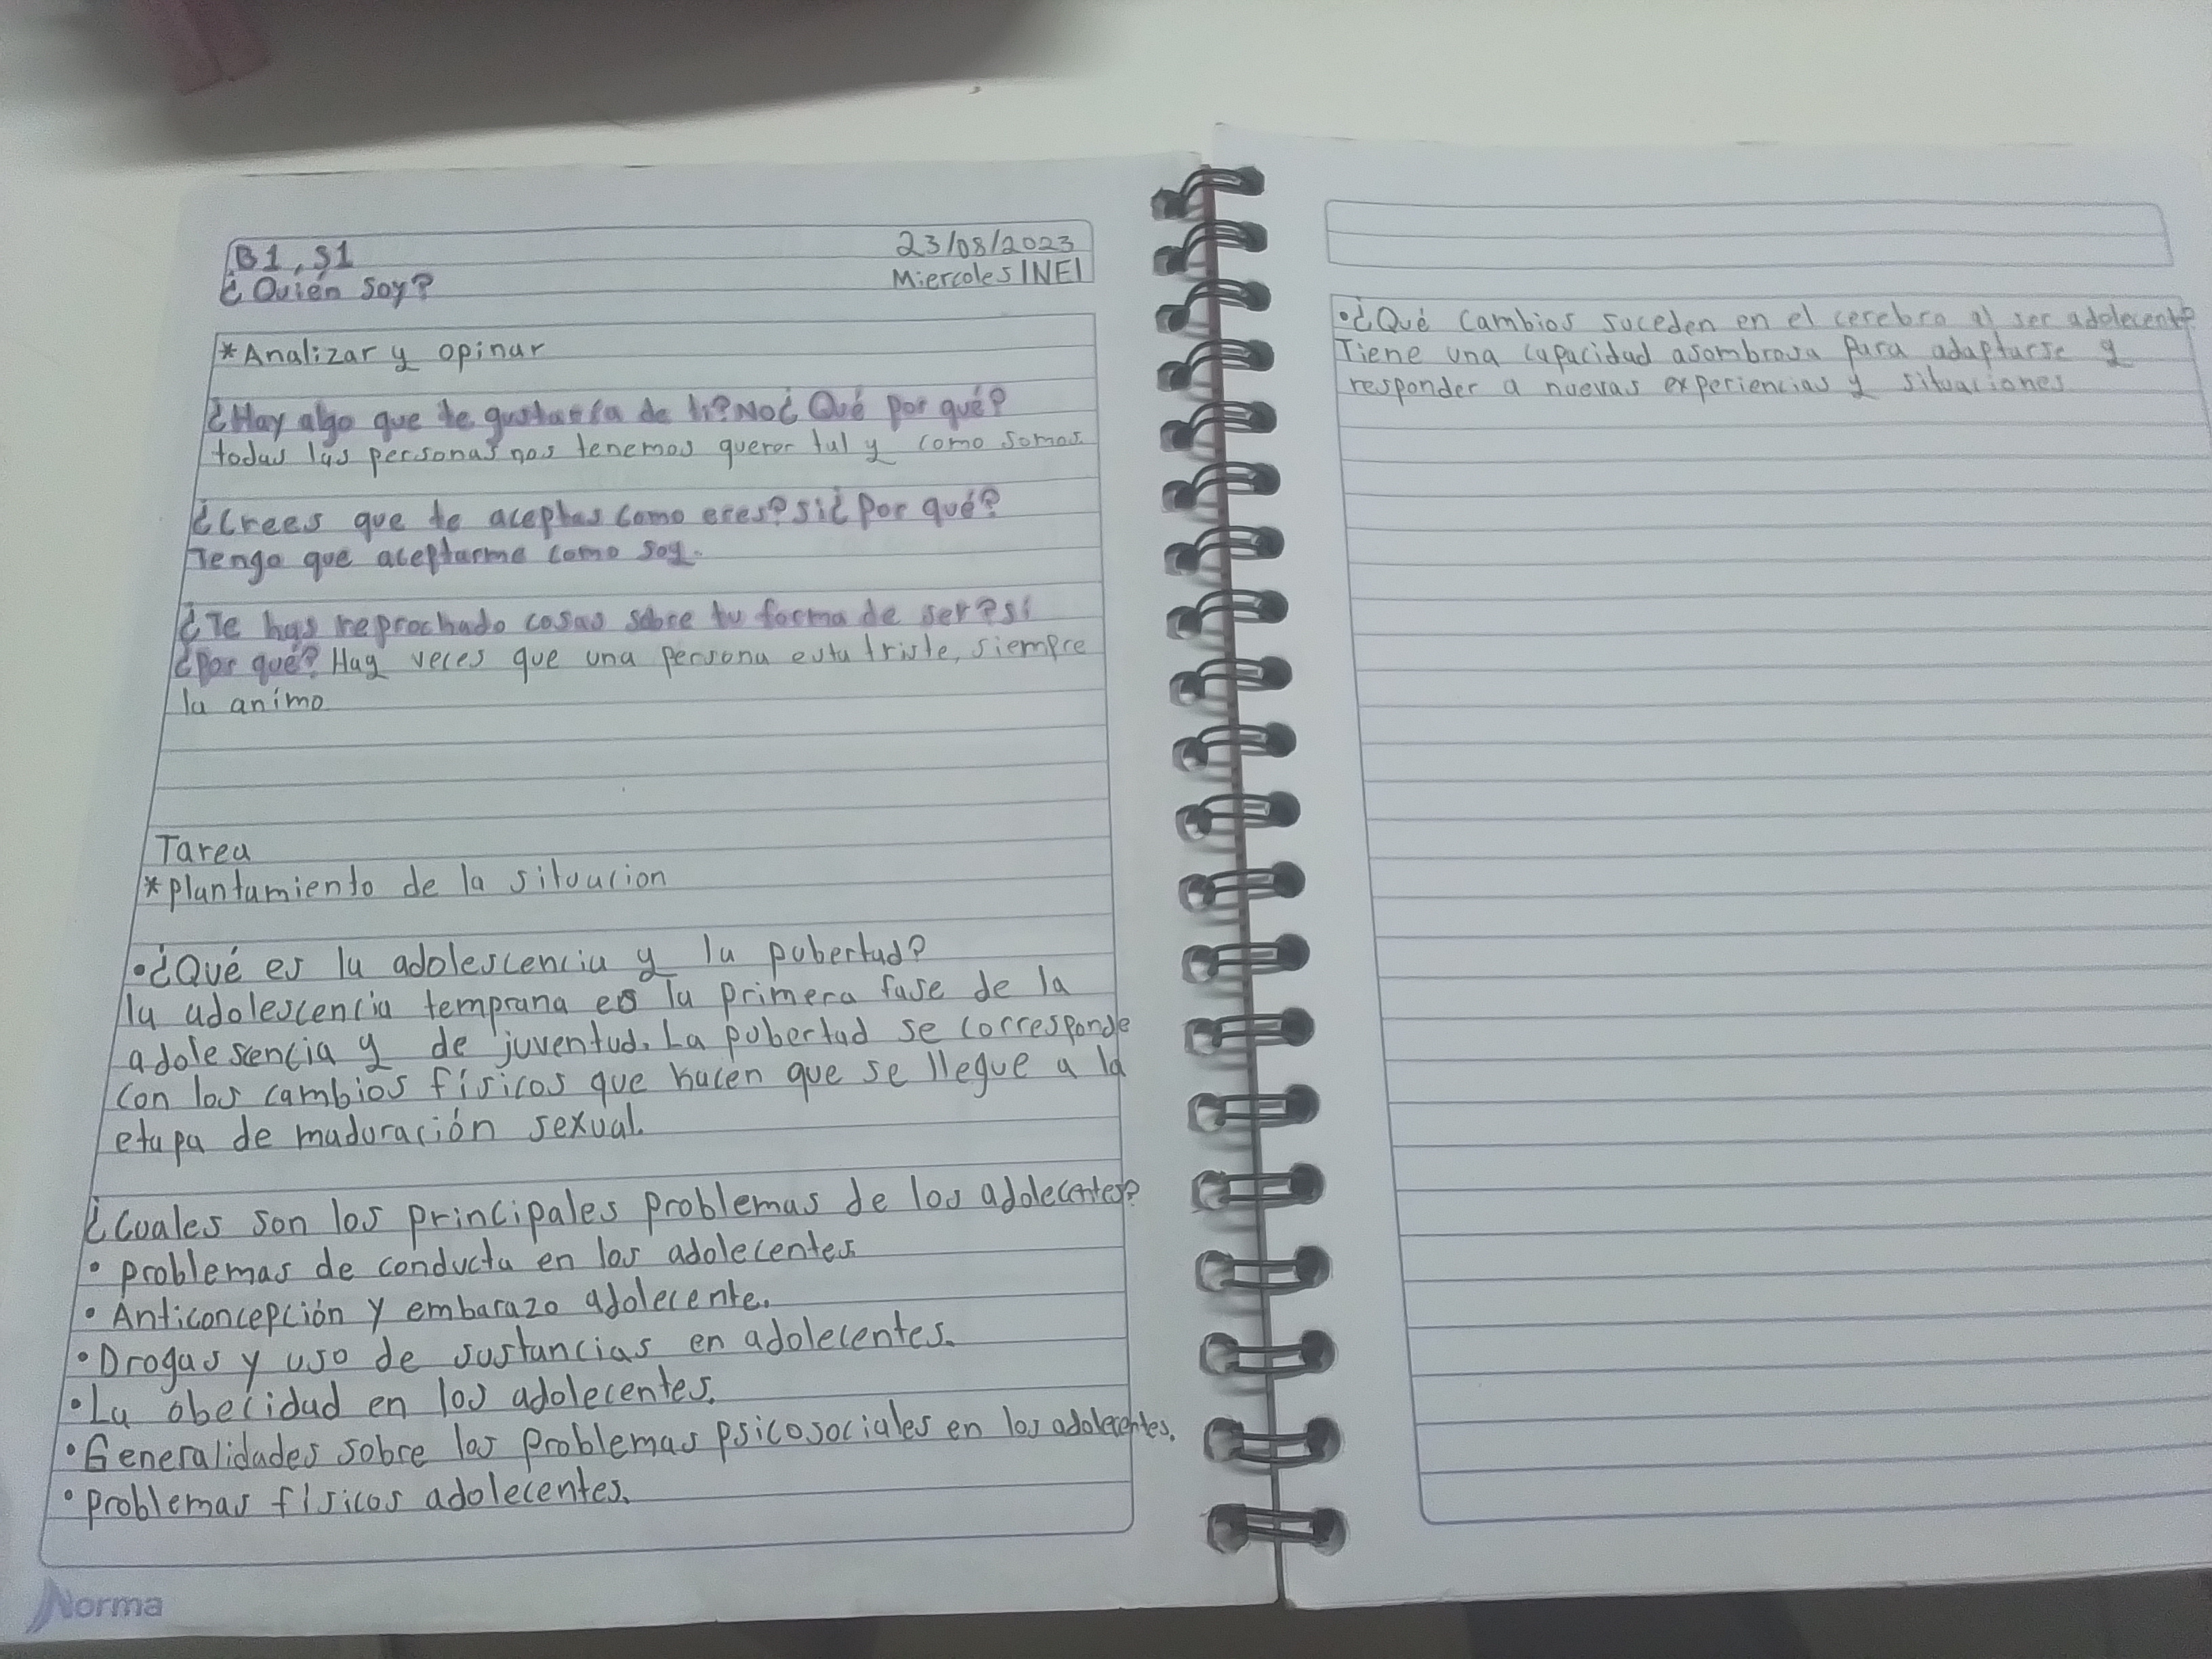 B1, S1
23/08/2023
¿Quién soy?
Miercoles INEI
*Analizar y opinar
¿Hay algo que te gustaría de ti? No ¿Qué por qué?
todas las personas nos tenemos querer tal y como somos
¿Crees que te aceptas como eres? si ¿Por qué?
Tengo que aceptarme como soy.
¿Te has reprochado cosas sobre tu forma de ser? si
¿Por qué? Hay veces que una persona esta triste, siempre
la animo
Tarea
*Plantamiento de la situacion
•¿Qué es la adolescencia y la pubertad?
la adolescencia temprana es la primera fase de la
adolescencia y de juventud. La pubertad se corresponde
con los cambios físicos que hacen que se llegue a la
etapa de maduración sexual.
¿Cuales son los principales problemas de los adolecentes?
• problemas de conducta en los adolecentes
• Anticoncepción y embarazo adolecente.
• Drogas y uso de sustancias en adolecentes.
• La obecidad en los adolecentes.
• Generalidades sobre los problemas psicosociales en los adolecentes.
• problemas físicos adolecentes.
Norma
•¿Qué cambios suceden en el cerebro al ser adolecente?
Tiene una capacidad asombrosa para adaptarse y
responder a nuevas experiencias y situaciones